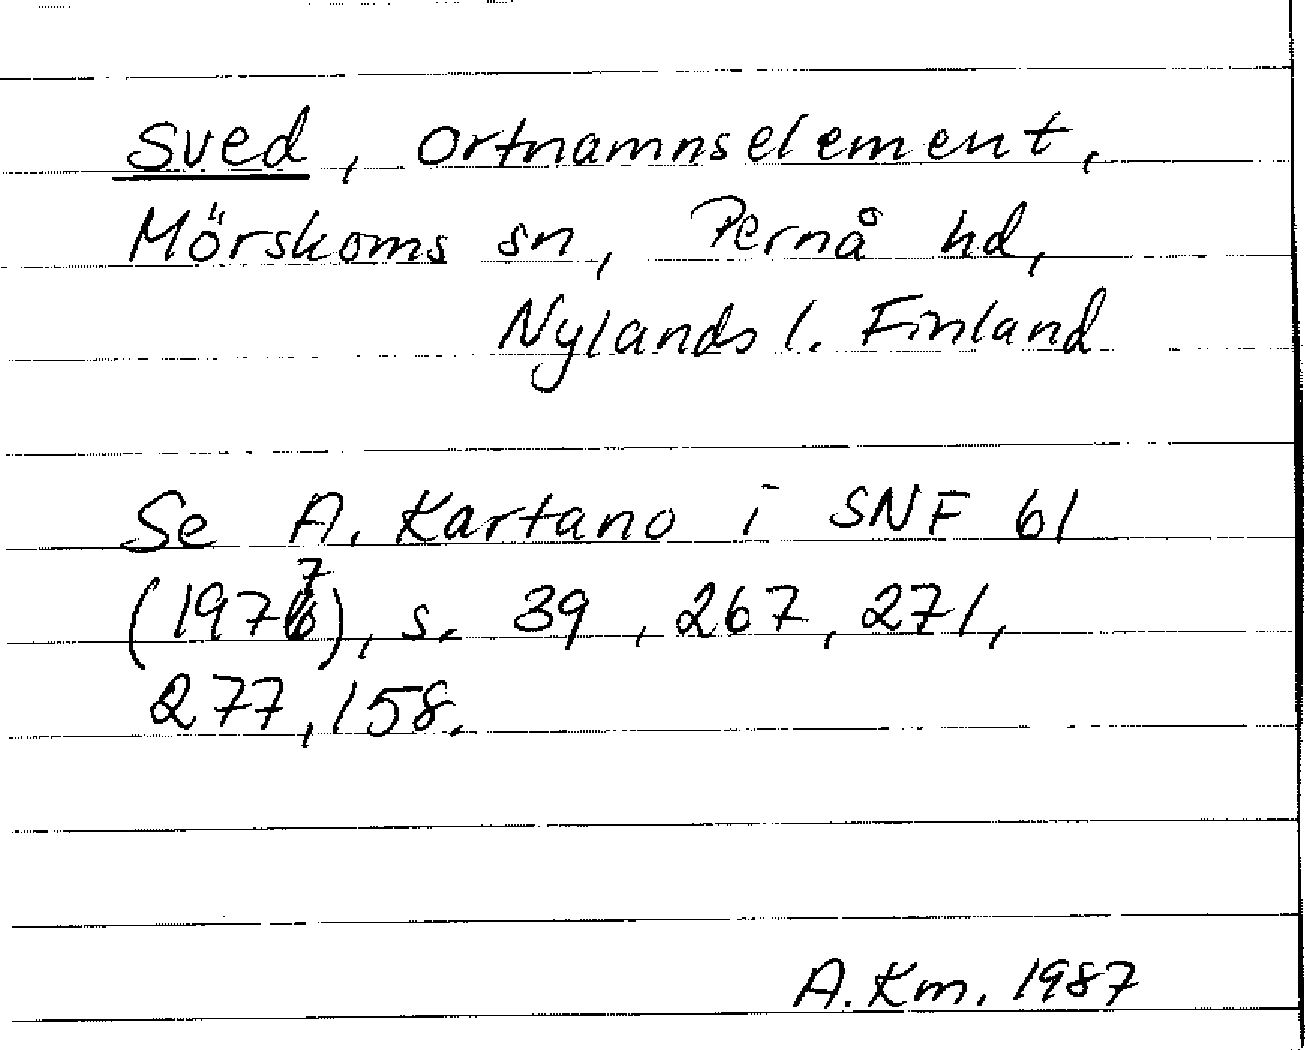 sved, ortnamnselement,
Mörskoms sn, Pernå hd,
Nylands l. Finland
Se A. Kartano i SNF 61
(1977), s. 39, 267, 271,
277, 158.
A. Km. 1987